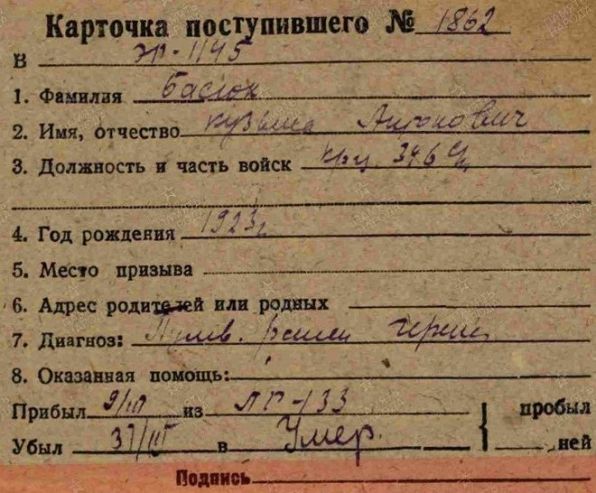 Карточка поступившего № 1862
В ЭГ-1145
1. Фамилия Басюк
2. Имя, отчество Кузьма Антонович
3. Должность и часть войск 346
4. Год рождения 1923г
5. Место призыва
6. Адрес родителей или родных
7. Диагноз: ранен
8. Оказанная помощь:
Прибыл 9/III из -133 пробыл
Убыл 31/III в Умер. ней
Подпись